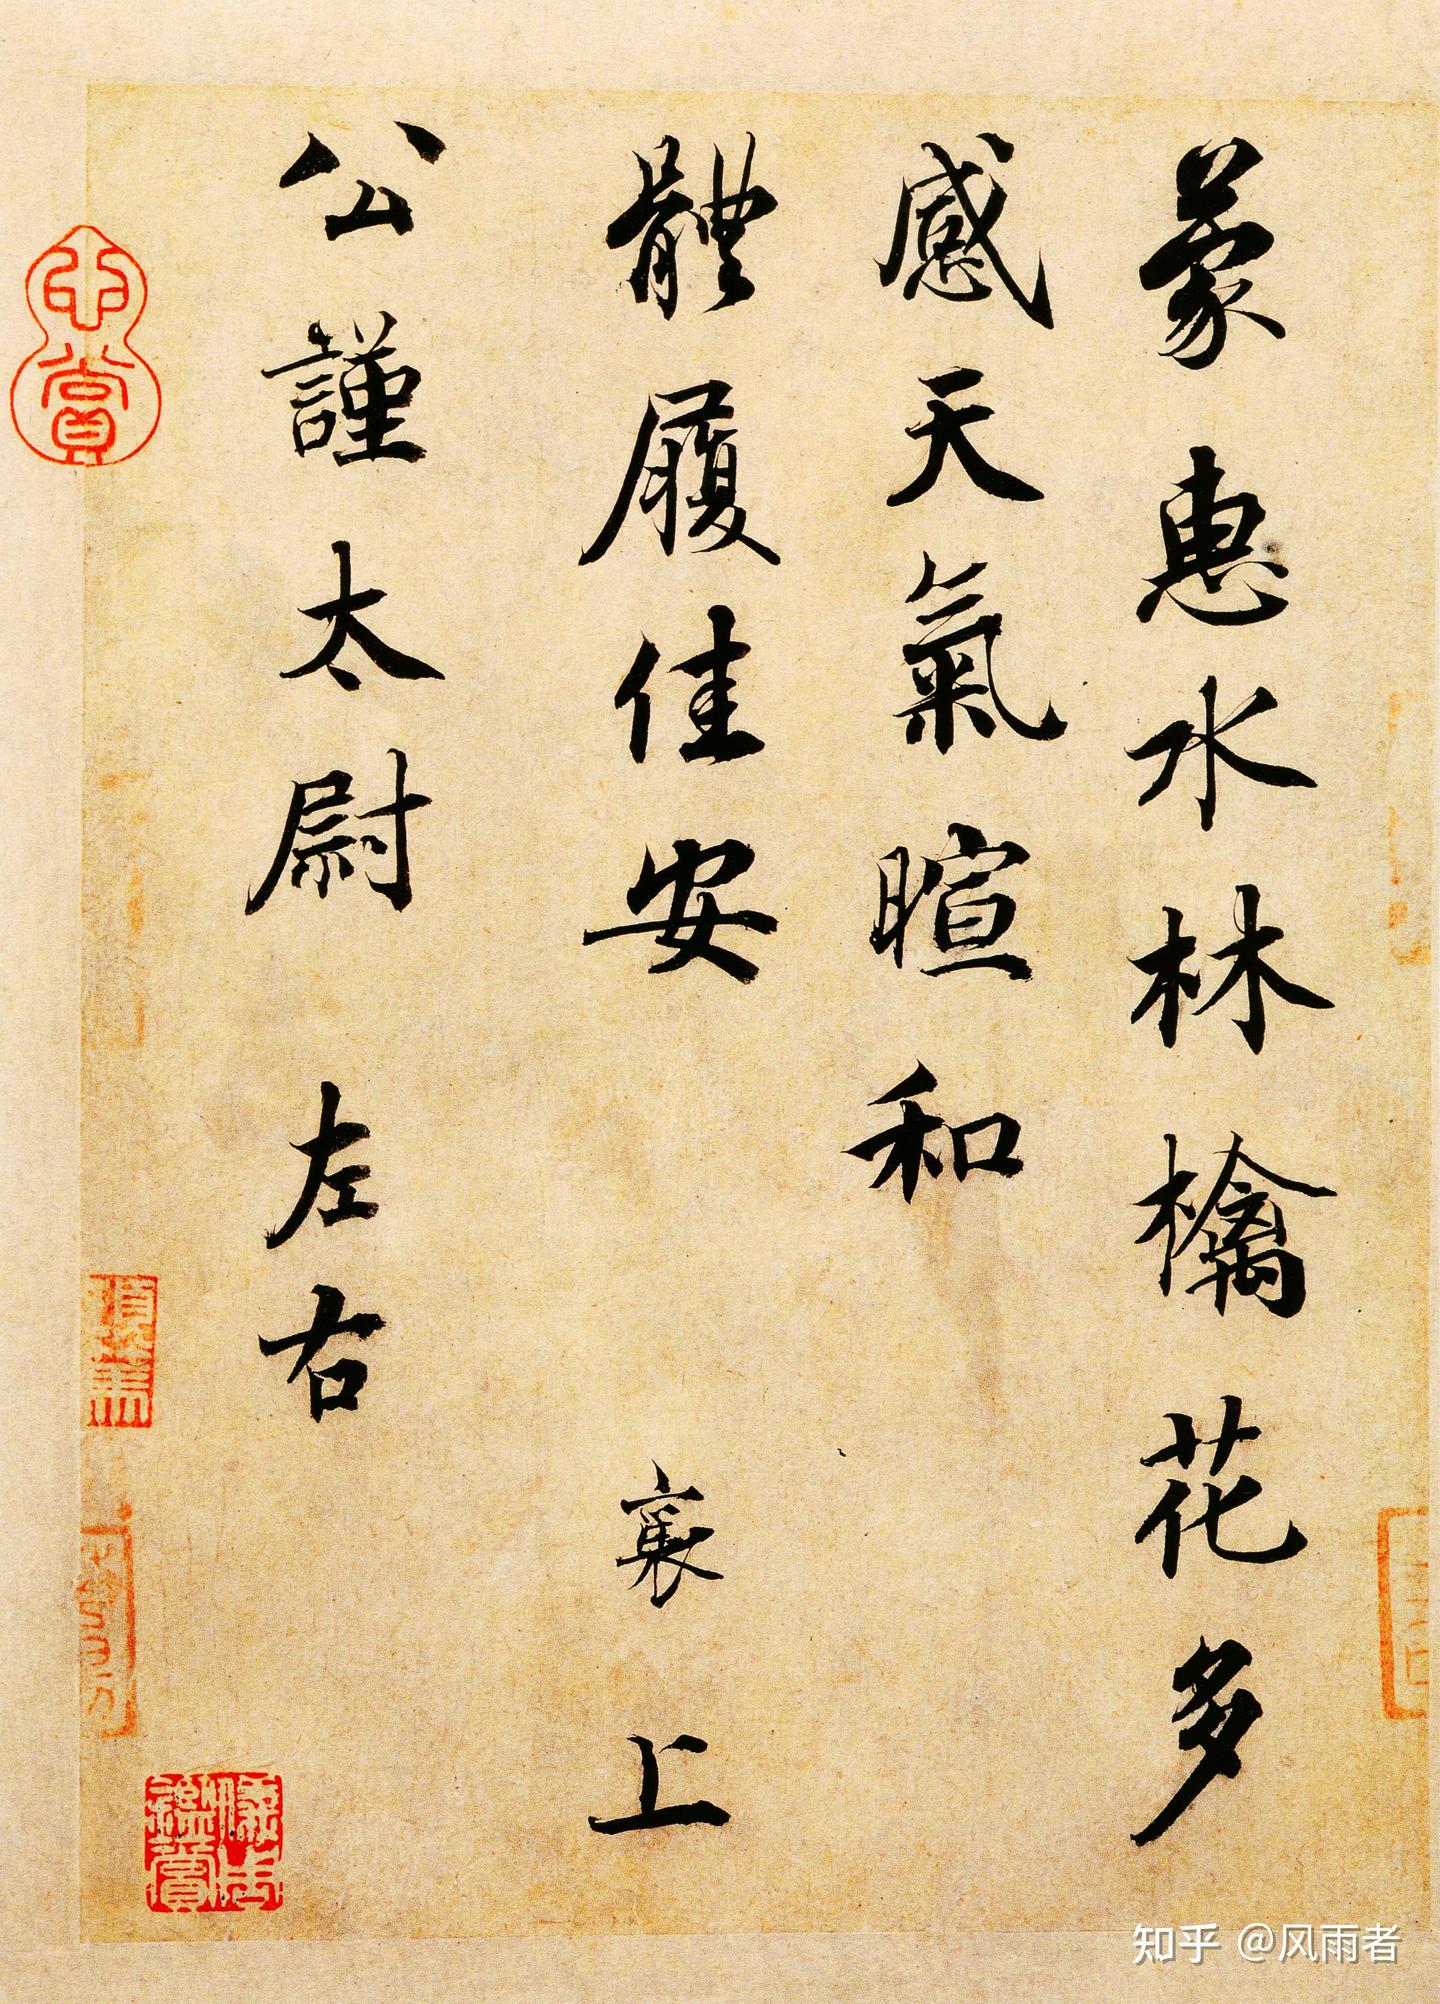 蒙惠水林檎花多
感天氣暄和
體履佳安 襄上
公謹太尉 左右
心賞
知乎 @风雨者